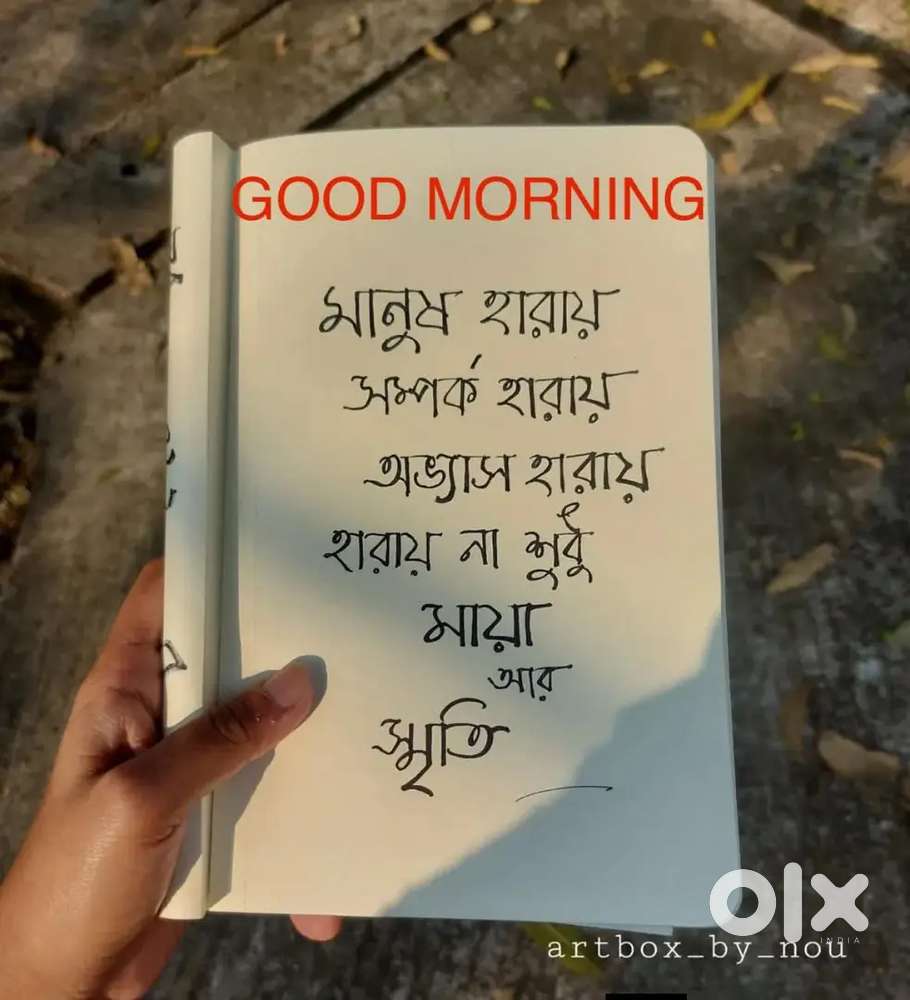 GOOD MORNING
মানুষ হারায়
সম্পর্ক হারায়
অভ্যাস হারায়
হারায় না শুধু
মায়া
আর
স্মৃতি
olx
INDIA
artbox_by_nou